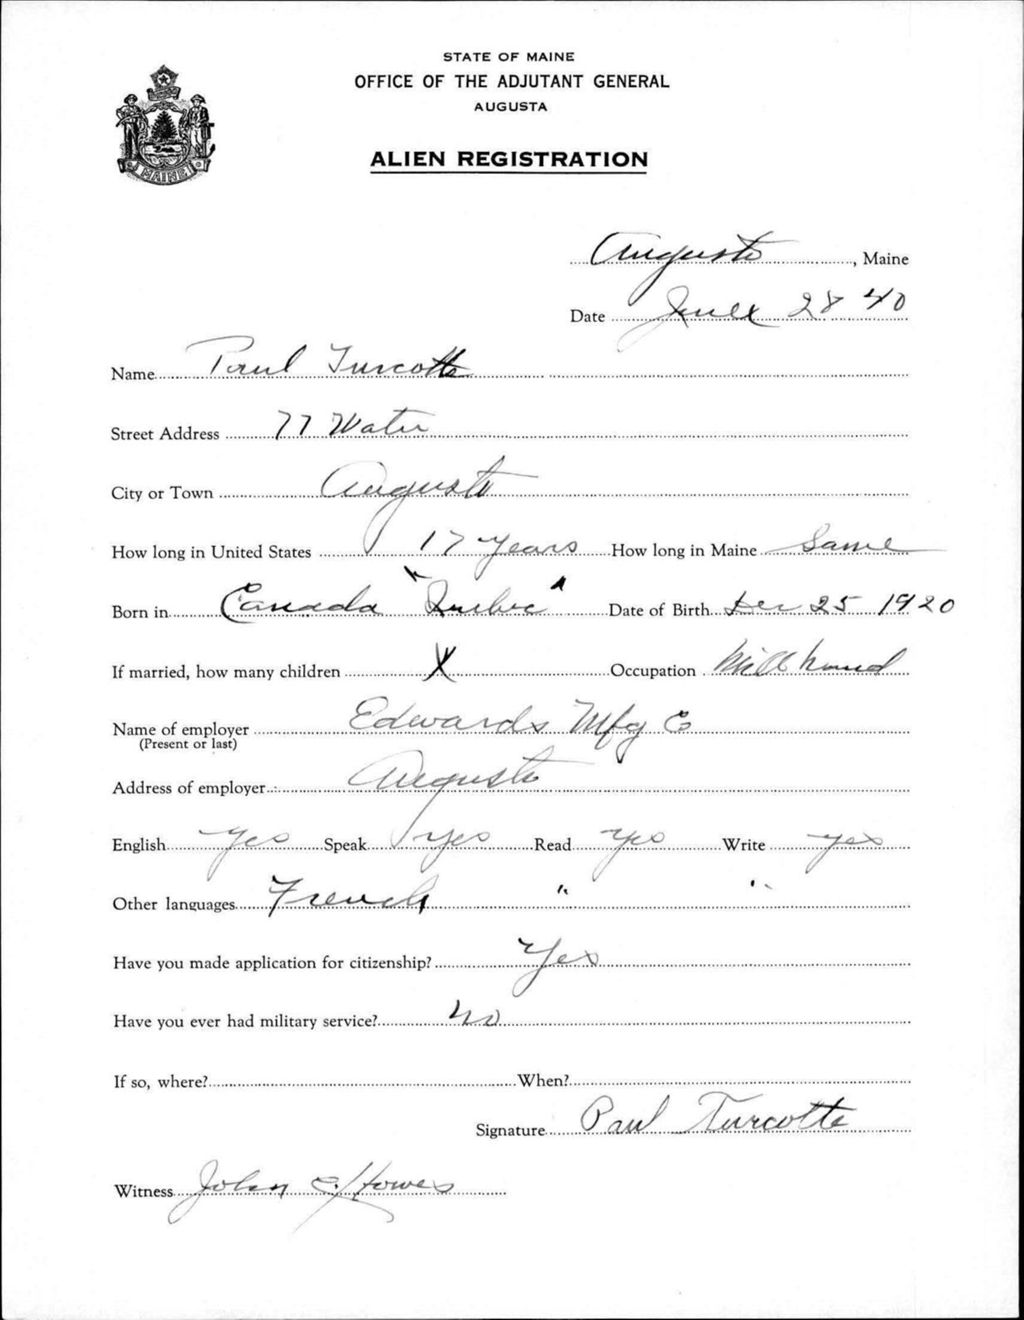 STATE OF MAINE
OFFICE OF THE ADJUTANT GENERAL
AUGUSTA
ALIEN REGISTRATION
MAINE
Augusta, Maine
Date June 28 40
Name Paul Turcotte
Street Address 77 Water
City or Town Augusta
How long in United States 17 years How long in Maine Same
Born in Canada "Quebec" Date of Birth Dec 25 1920
If married, how many children X Occupation Mill hand
Name of employer Edwards Mfg Co
(Present or last)
Address of employer Augusta
English Yes Speak yes Read yes Write yes
Other languages French " "
Have you made application for citizenship? Yes
Have you ever had military service? no
If so, where? When?
Signature Paul Turcotte
Witness John E Howes